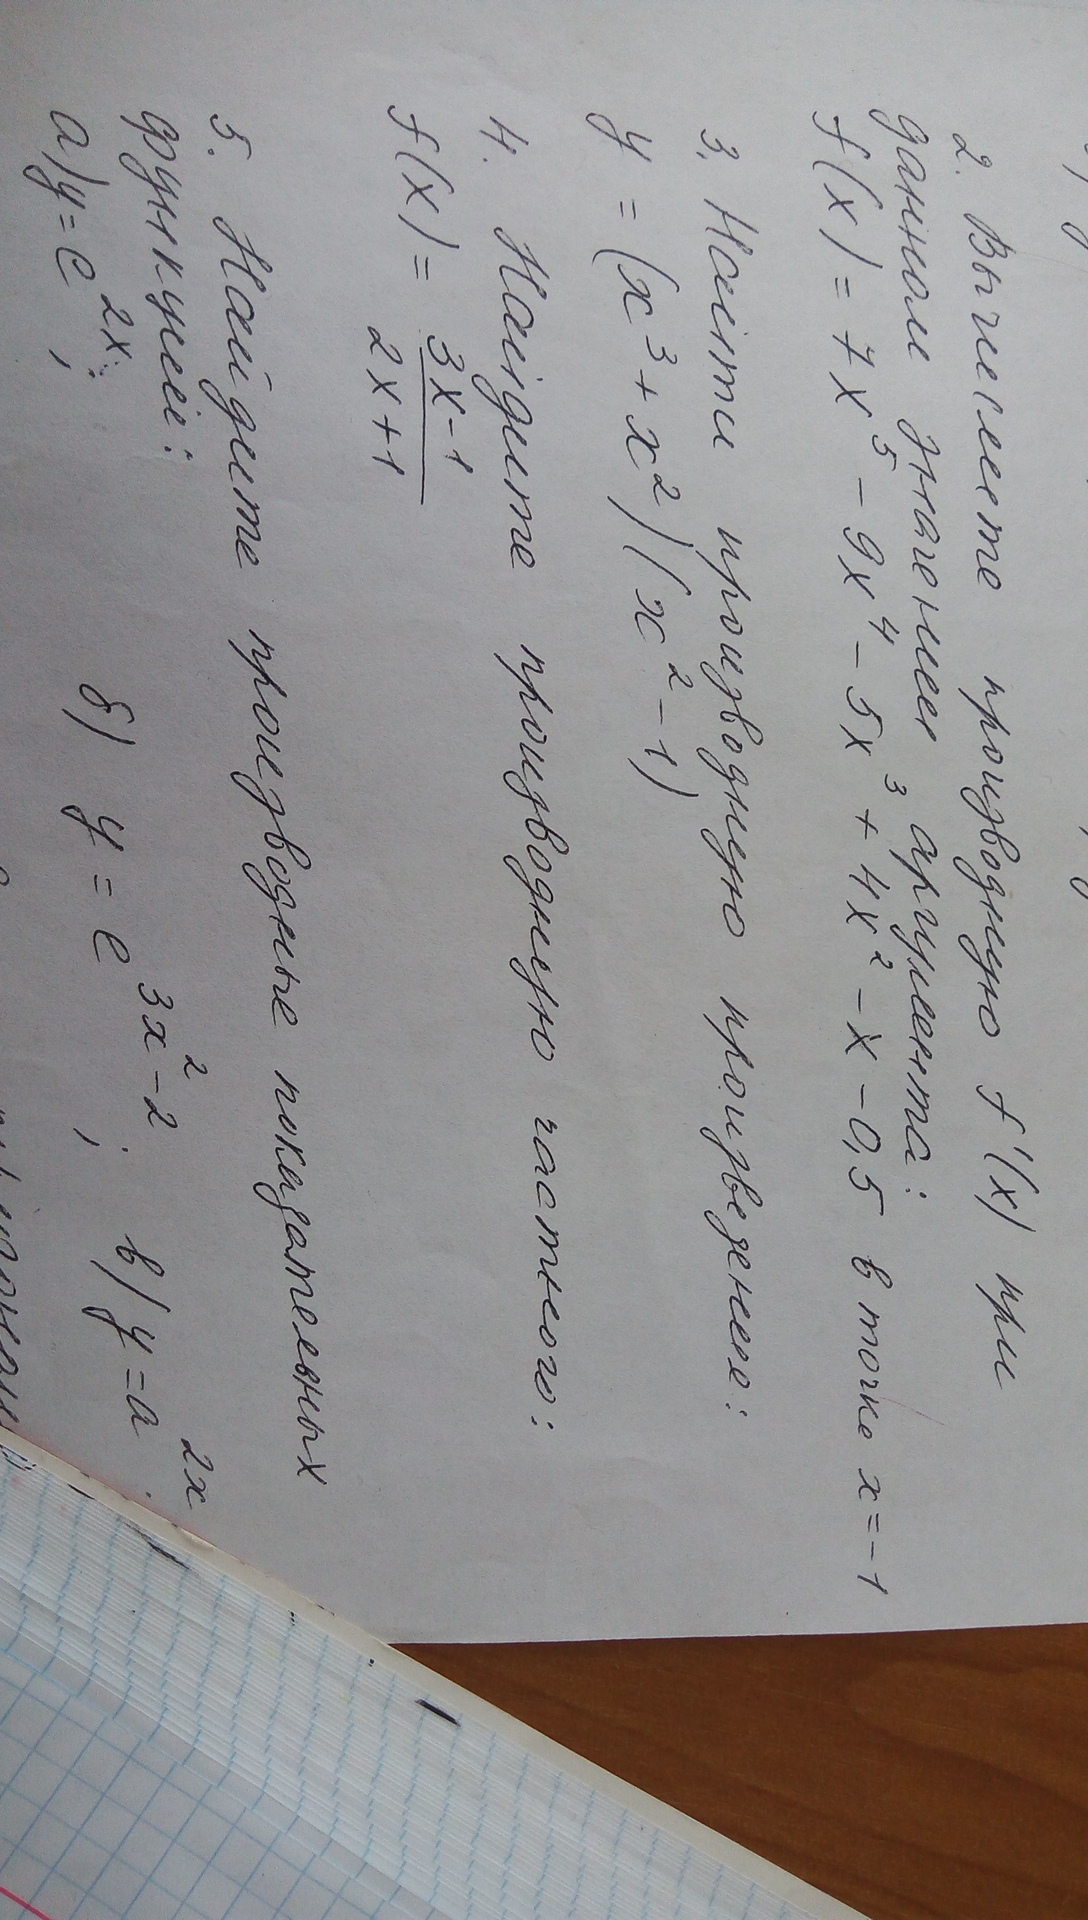 2. Вычислите производную f'(x) при
данном значении аргумента:
f(x) = 7x⁵ - 9x⁴ - 5x³ + 4x² - x - 0,5 в точке x = -1
3. Найти производную произведения:
y = (x³ + x²)(x² - 1)
4. Найдите производную частного:
f(x) = (3x-1)/(2x+1)
5. Найдите производные показательных
функций:
а) y = e²ˣ; б) y = e^(3x²-2); в) y = a²ˣ